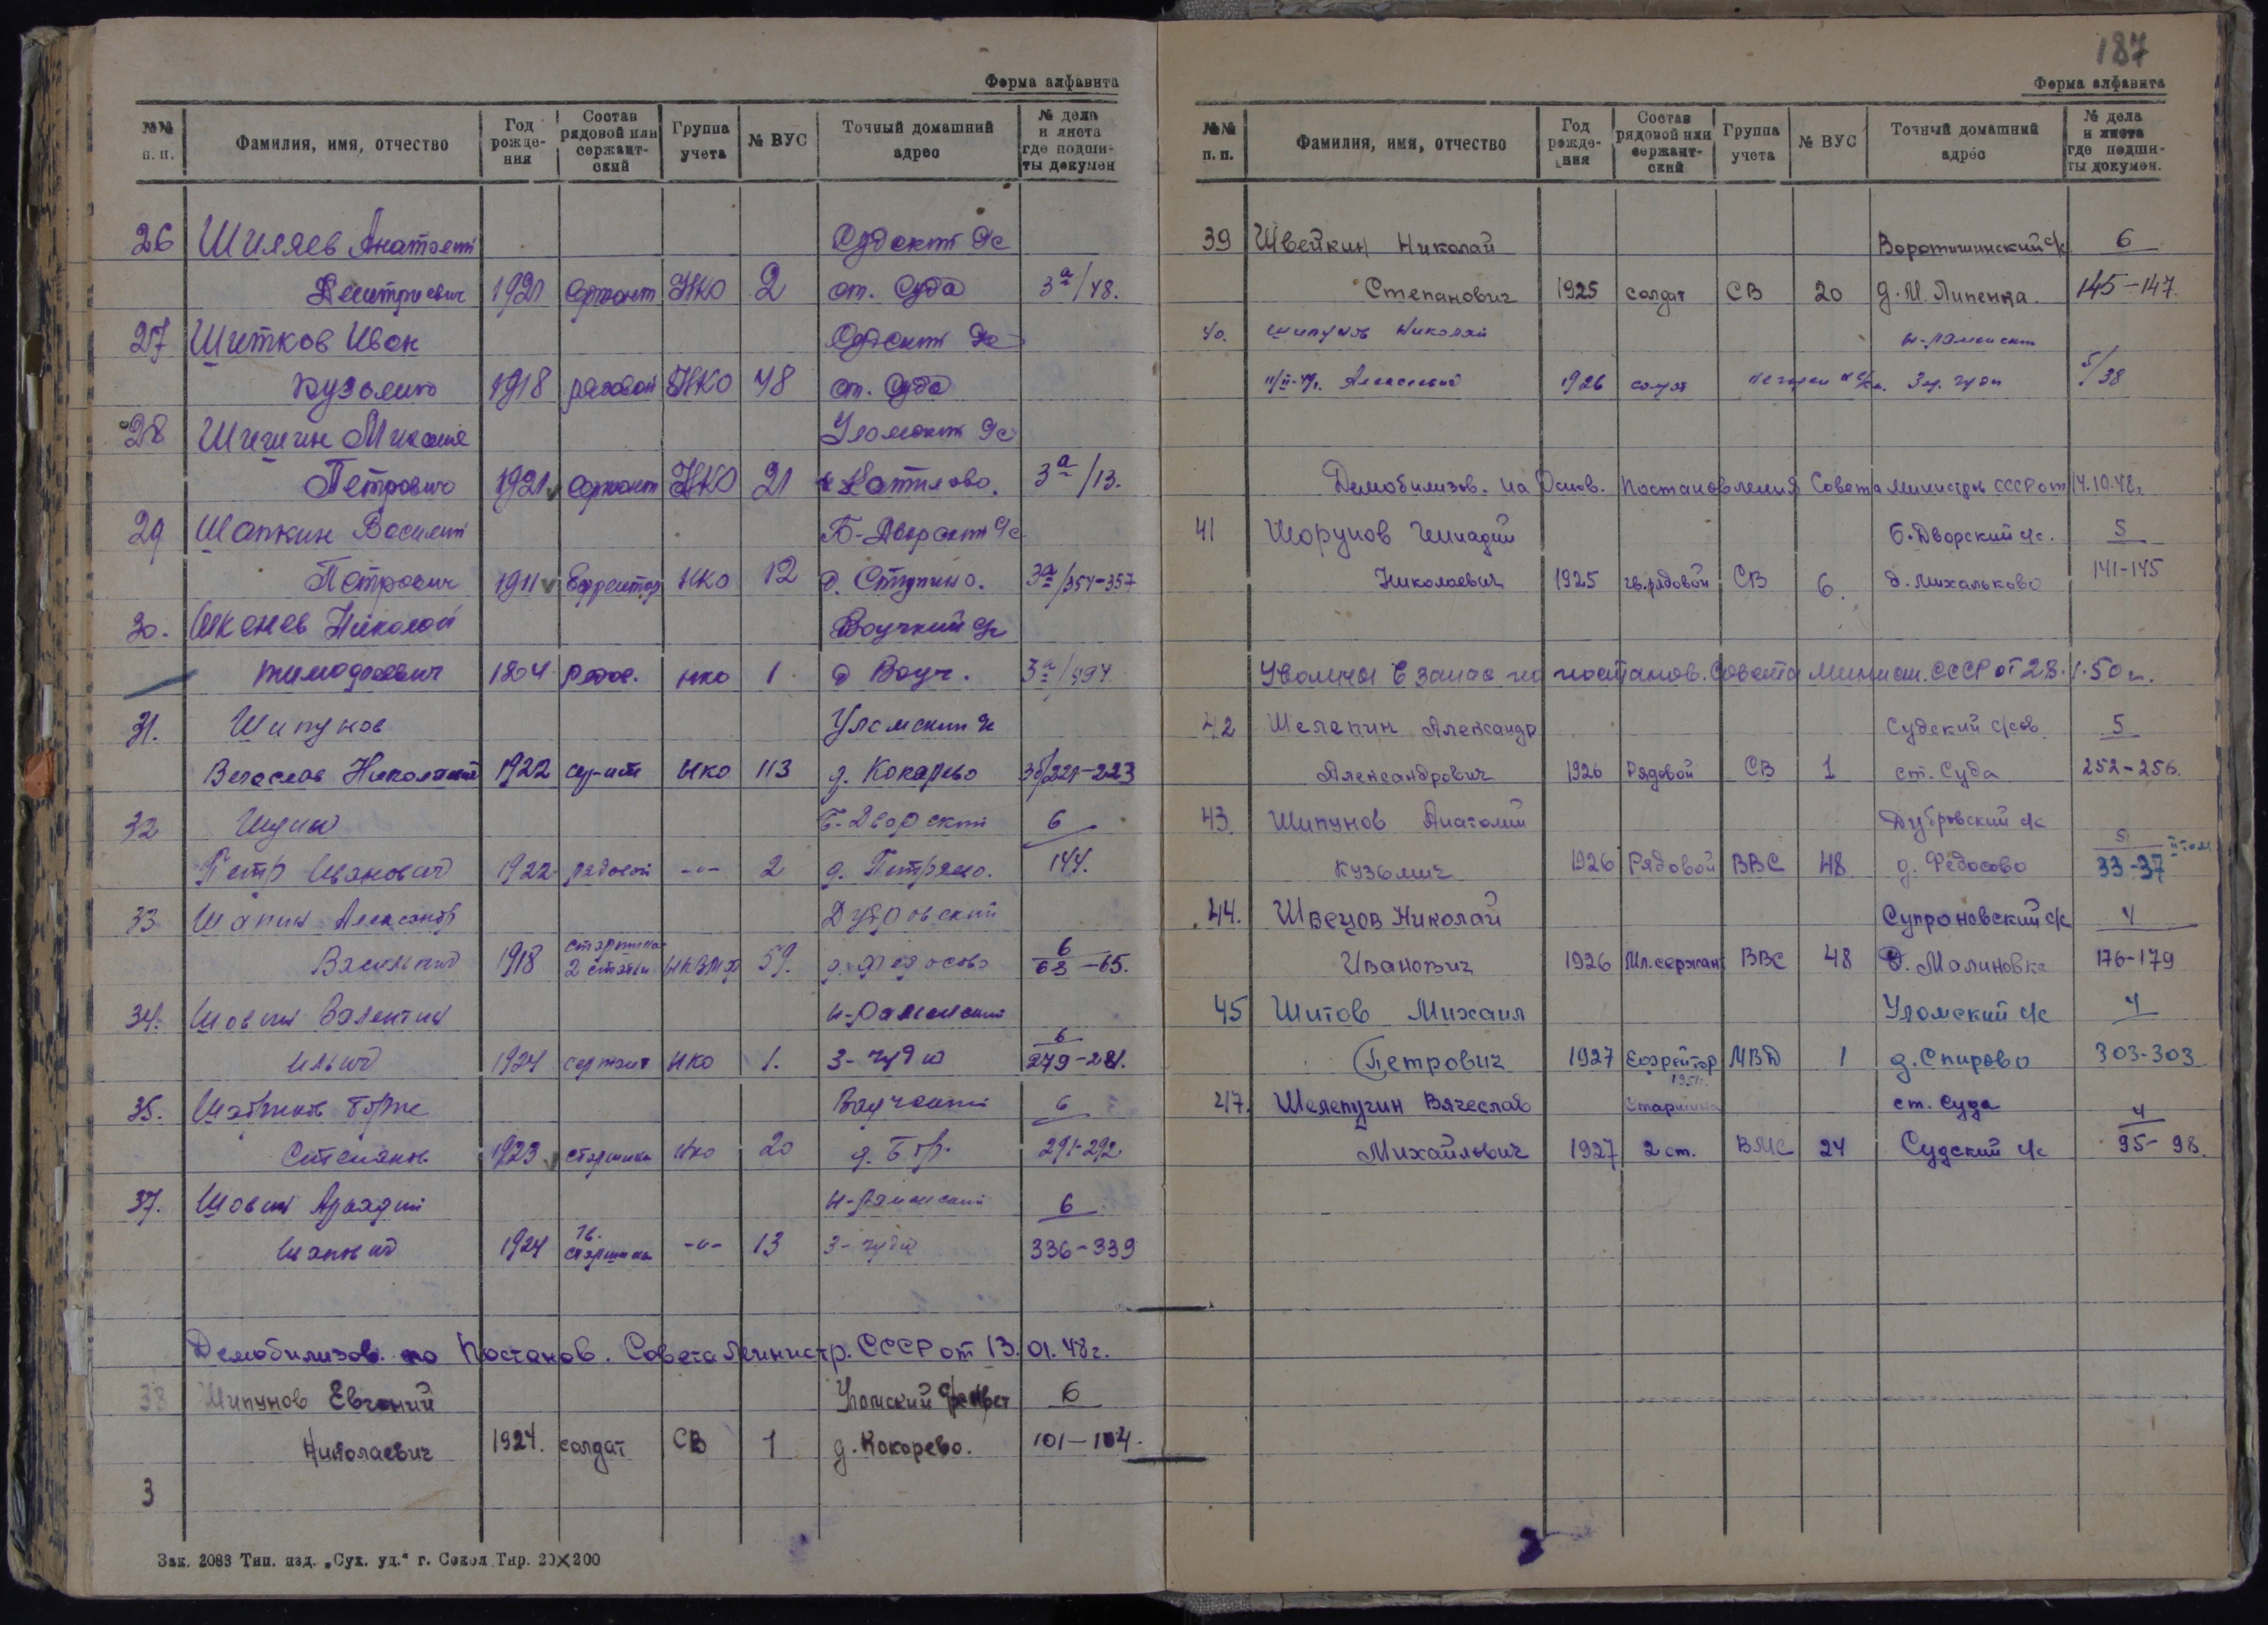 Форма алфавита
№№ п. п.
Фамилия, имя, отчество
Год рожде-ния
Состав рядовой или сержант-ский
Группа учета
№ ВУС
Точный домашний адрес
№ дела и листа где подши-ты докумен
26 Шиляев Анатолий Судский с/с
Дмитриевич 1921 сержант НКО 2 ст. Суда 3а/48.
27 Шитков Иван Судский с/с
Кузьмич 1918 рядовой НКО 48 ст. Суда
28 Шишин Михаил Уломский с/с
Петрович 1921 сержант НКО 21 3а/13.
29 Шапкин Василий Б-Дворский с/с
Петрович 1911 Ефрейтор НКО 12 д. Ступино. 3а/354-357
30. Николай Воучкий с/с
Тимофеевич рядов. нко 1 д Воуч.
31. Шипунов Уломский с/с
Вячеслав Николаевич 1922 нко 113 д. Кокарево 221-223
32 Б-Дворский 6
Петр Иванович 1922 рядовой -"- 2 144.
33 Шапин Александр Дубровский
Васильевич 1918 старшина 2 статьи 59. д. Федосово 6 63-65.
34. Шовин Валентин Н-Раменский 6
Ильич 1924 сержант НКО 1. З-Чуди 279-281.
35. Воучский 6
1923 старшина Нко 20 291-292
37. Шовин Аркадий Н-Раменский 6
Иванович 1924 гв. старшина -"- 13 З-Чуди 336-339
Демобилизов. по Постанов. Совета Министр. СССР от 13.01.48г.
38 Шипунов Евгений Уломский с/совет 6
Николаевич 1924. солдат СВ 1 д. Кокорево. 101-104.
3
Зак. 2083 Тип. изд. „Сух. уд.“ г. Сокол Тир. 20×200
187
Форма алфавита
№№ п. п.
Фамилия, имя, отчество
Год рожде-ния
Состав рядовой или сержант-ский
Группа учета
№ ВУС
Точный домашний адрес
№ дела и листа где подши-ты докумен.
39 Швейкин Николай Воротишинский с/с 6
Степанович 1925 солдат СВ 20 д. М. Липенка. 145-147.
40. Шипунов Николай Н-Раменский
Алексеевич 1926 солдат 5/38
Демобилизов. на Основ. Постановления Совета Министров СССР от 14.10.48г.
41 Шорунов Геннадий Б.Дворский с/с. 5
Николаевич 1925 гв.рядовой СВ 6. д. Михальково 141-145
Уволены в запас по постанов. Совета Минист. СССР от 28.1.50г.
42 Шелепин Александр Судский с/сов. 5
Александрович 1926 Рядовой СВ 1 ст. Суда 252-256.
43. Шипунов Анатолий Дубровский с/с 5
Кузьмич 1926 Рядовой ВВС 48 д. Федосово 33-37
44. Швецов Николай Супроновский с/с 4
Иванович 1926 Мл.сержан ВВС 48 д. Малиновка 176-179
45 Шитов Михаил Уломский с/с 4
Петрович 1927 Ефрейтор МВД 1 д. Спирово 303-303
47. Шелепугин Вячеслав Старшина ст. Суда 4
Михайлович 1927 2 ст. ВМС 24 Судский с/с 95-98.